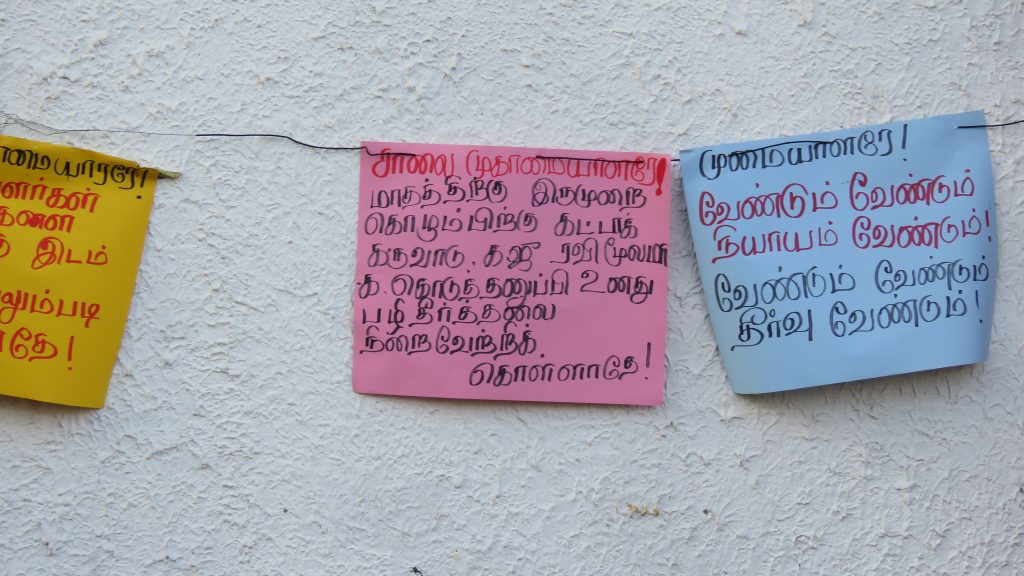 மையாரரே!
ளர்கள்
களை
இடம்
லும்படி
தே!
சாலை முகாமையாளரே!
மாதத்திற்கு இருமுறை
கொழும்பிற்கு கட்டாக்
கருவாடு, கஜூ ரவிமூலமாக
க. கொடுத்தனுப்பி உனது
பழி தீர்த்தலை
நிறைவேற்றிக்
கொள்ளாதே!
முமையாளரே!
வேண்டும் வேண்டும்
நியாயம் வேண்டும்!
வேண்டும் வேண்டும்
தீர்வு வேண்டும்!